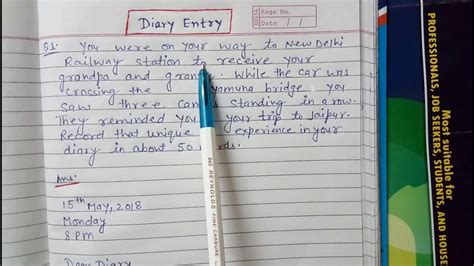 Diary Entry
Page No.
Date / /
Q1. You were on your way to New Delhi
Railway station to receive your
grandpa and granny. While the car was
crossing the yamuna bridge you
saw three camels standing in a row.
They reminded you your trip to Jaipur.
Record that unique experience in your
diary in about 50 words.
Ans:
15th May, 2018
Monday
8 pm
Dear Diary
REYNOLDS FINE CARBURE
Most suitable for
PROFESSIONALS, JOB
SEEKERS, STUDENTS,
AND HOUSE